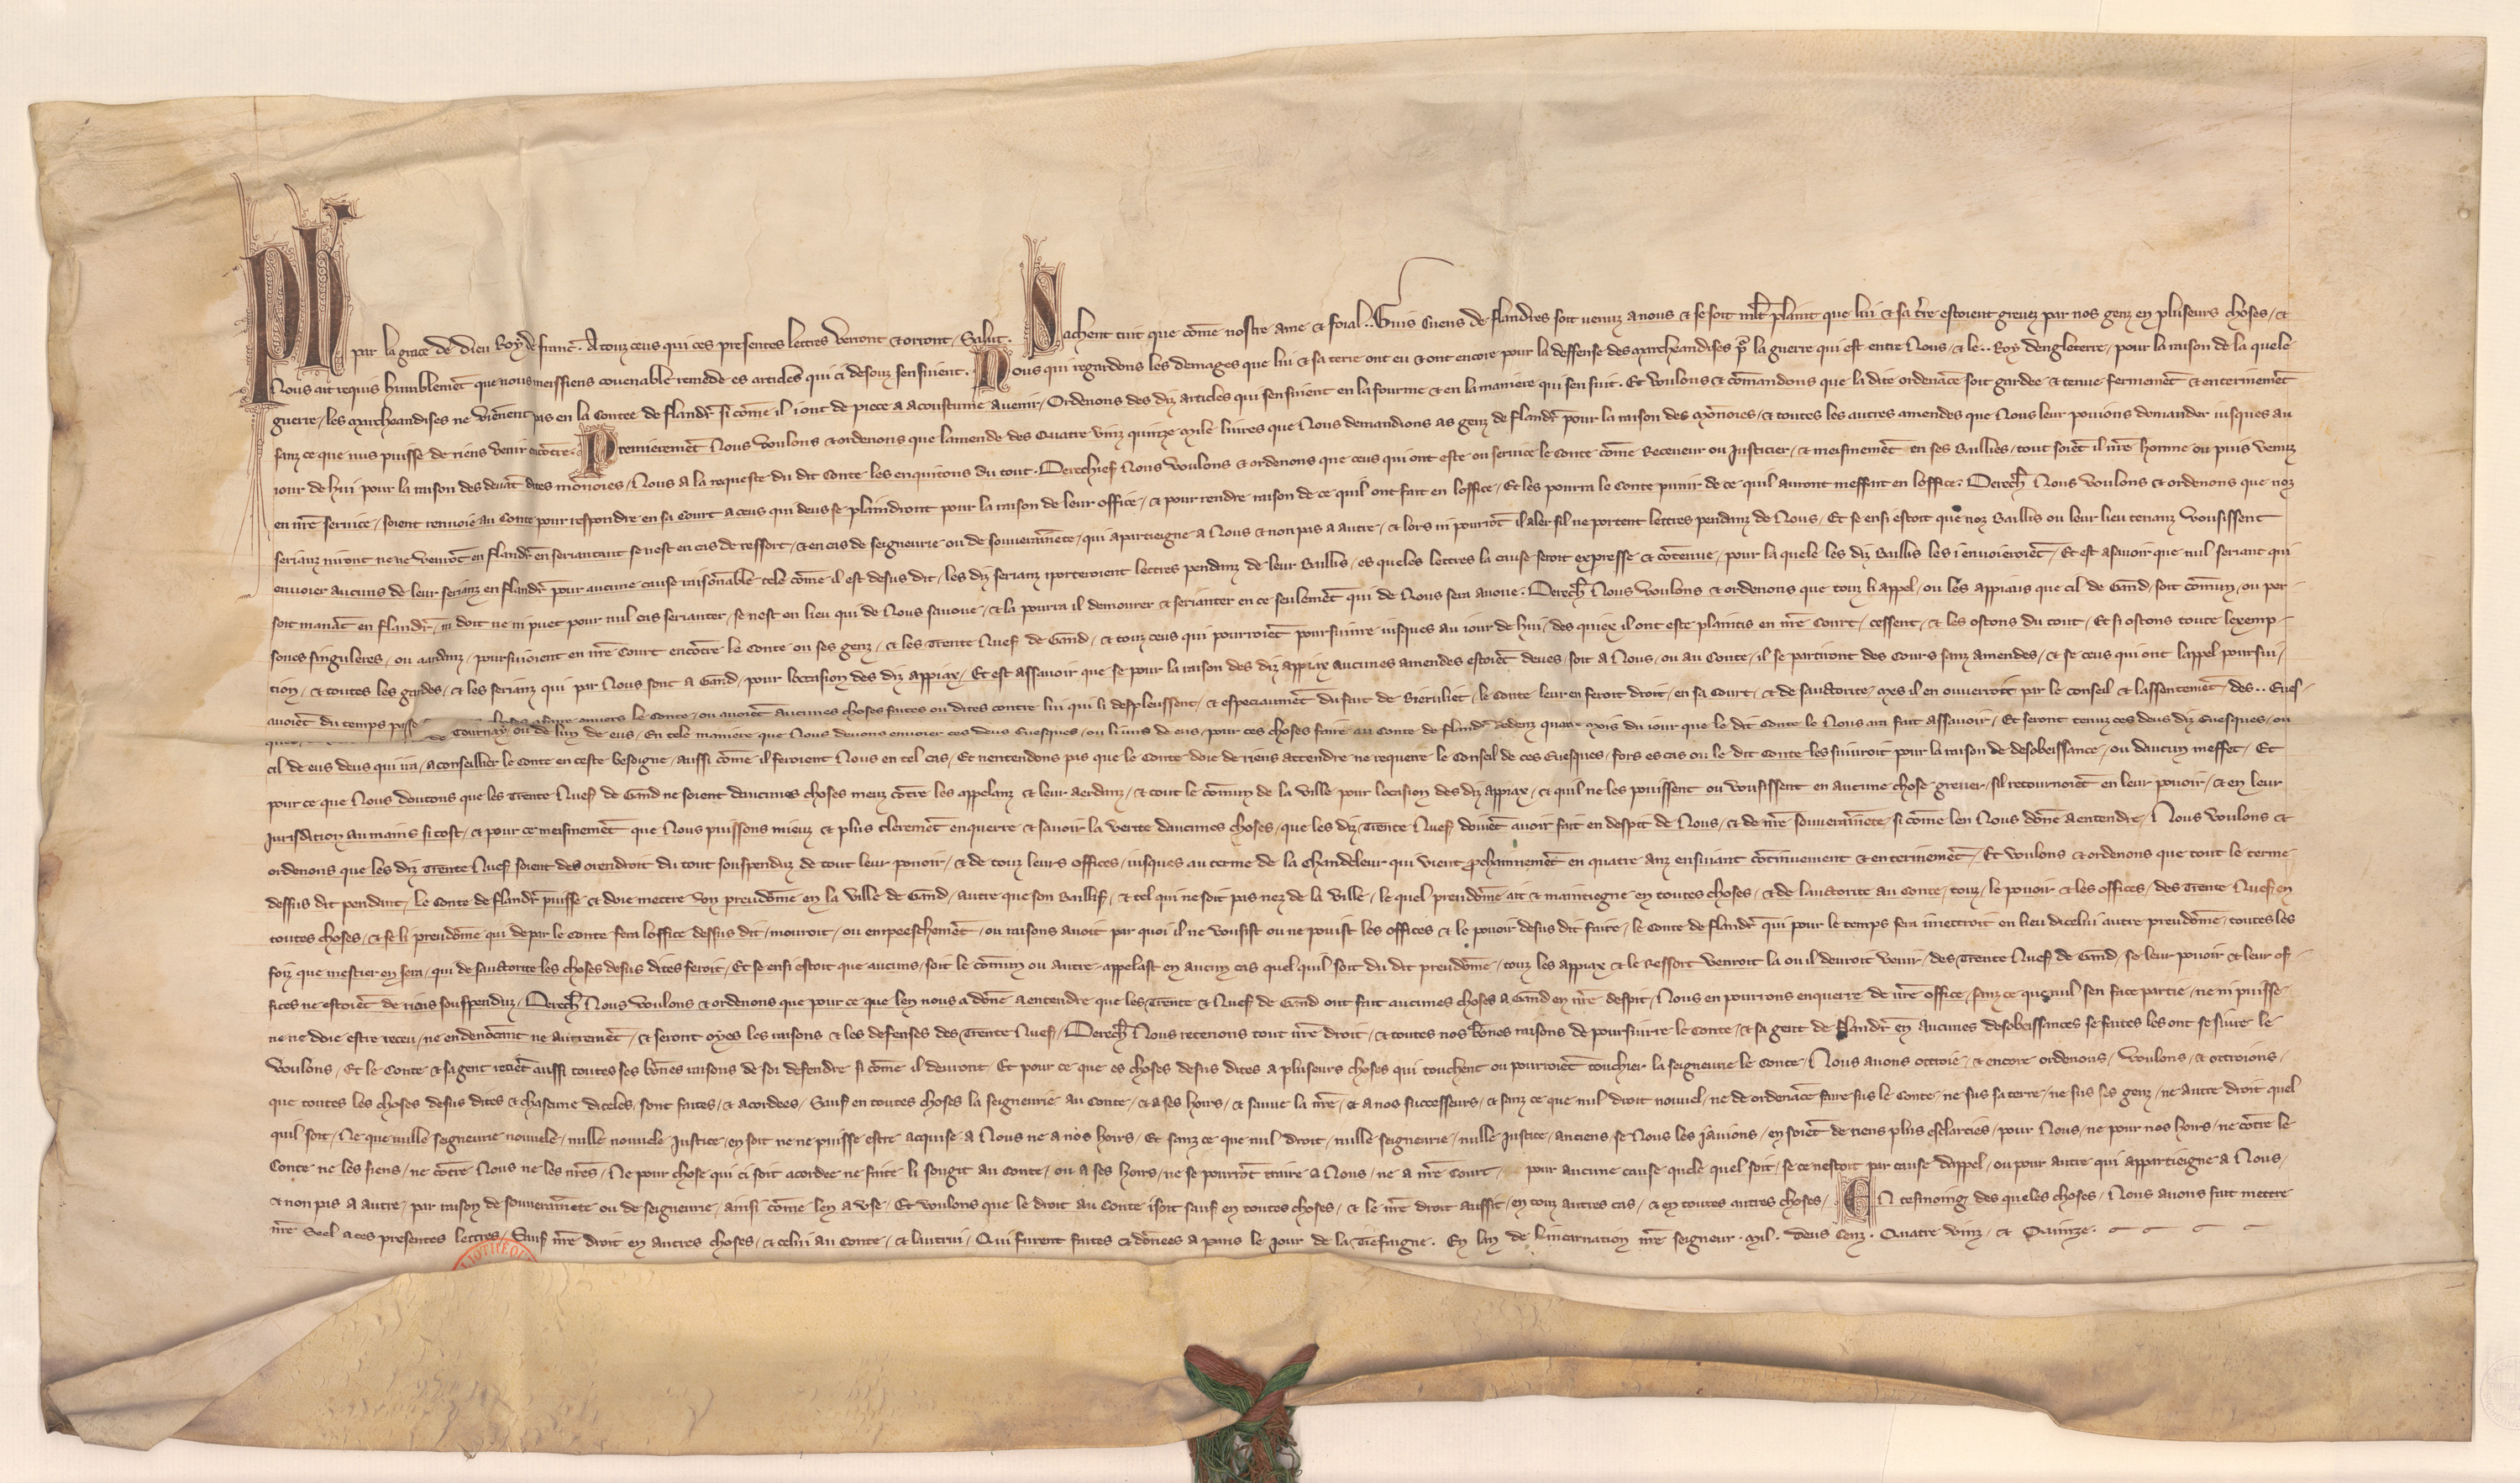 Ph par la grace de Dieu Roy de franc̄. A touz ceus qui ces presentes lettres verront & orront, Salut. Sachent tuit que cōme nostre ame & foial.. Guis Cuens de flandres soit venuz a nous & se soit ml̄t plaint que lui & sa t̄re estoient grevez par nos genz en pluseurs choses, &
Nous ait requis humblemēt que nous meissiens covenable remede es articles qui ci desouz sensuient. Nous qui regardons les domages que lui & sa terre ont eu & ont encore pour la deffense des marcheandises pͬ la guerre qui est entre Nous, & le.. Roy dengleterre, pour la raison de la quele
guerre, les marcheandises ne viēnent pas en la Contee de flandr̄ si cōme il i ont de piece a acoustume a venir, Ordenons des diz articles qui sensuient en la fourme & en la maniere qui sen suit. Et voulons & cōmandons que la dite ordenāce soit gardee & tenue fermemēt & enterinemēt
sanz ce que nus puisse de riens venir encōtre. Premieremēt Nous voulons & ordenons que lamende des Quatre vinz quinze mile livres que Nous demandions as genz de flandr̄ pour la raison des mōnoies, & toutes les autres amendes que Nous leur povions demander iusques au
iour de hui pour la raison des devāt dites mōnoies, Nous a la requeste du dit Conte les enquitons du tout. Derechief Nous voulons & ordenons que ceus qui ont este ou service le Conte cōme Receveur ou Justicier, & meismemēt en ses Baillies, tout soiēt il nr̄e homme ou puis venuz
en nr̄e service, soient renvoie au Conte pour respondre en sa Court a ceus qui deus se plaindront pour la raison de leur office, & pour rendre raison de ce quil ont fait en loffice, Et les pourra le Conte punir de ce quil auront meffait en loffice. Derech̄ Nous voulons & ordenons que noz
serianz niront ne ne venrōt en flandr̄ en seriantant se nest en cas de ressort, & en cas de seigneurie ou de souverainete, qui apartieigne a Nous & non pas a autre, & lors ni pourrōt il aler sil ne portent lettres pendanz de Nous, Et se ensi estoit que noz Baillis ou leur lieu tenanz vousissent
envoier aucuns de leur serianz en flandr̄ pour aucune cause raisonable tele cōme il est desus dit, les diz serianz i porteroient lettres pendanz de leur Baillis, es queles lettres la cause seroit expresse & cōtenue, pour la quele les diz Baillis les i envoieroiēt, Et est a savoir que nul seriant qui
soit manāt en flandr̄, ni doit ne ni puet pour nul cas serianter, se nest ou lieu qui de Nous savoue, & la pourra il demourer & serianter en ce seulemēt qui de Nous sera avoue. Derech̄ Nous voulons & ordenons que touz li appel, ou les appiaus que cil de Gand, soit cōmun, ou per-
sones singuleres, ou aardanz, poursuioient en nr̄e Court encōtre le Conte ou ses genz, & les Trente Nuef de Gand, & touz ceus qui pourroiēt poursuivre iusques au iour de hui, des quiex il ont este plaintis en nr̄e Court, cessent, & les ostons du tout, Et si ostons toute lexemp-
tion, & toutes les gardes, & les serianz qui par Nous sont a Gand, pour loccasion des diz appiax, Et est assavoir que se pour la raison des diz appiax aucunes amendes estoiēt deues, soit a Nous, ou au Conte, il se partiront des Cours sanz amendes, & se ceus qui ont lappel poursui,
avoiēt du temps passe envers le Conte, ou avoiēt aucunes choses faites ou dites contre lui qui li despleussent, & especiaumēt du fait de Biervliet, le Conte leur en feroit droit, en sa Court, & de sauctorite, mes il en ouverroit par le conseil & lassentemēt, des.. Eves-
Tournay, ou de lun de eus, En tele maniere que Nous devons envoier ces deus Evesques, ou li uns de eus, pour ces choses faire au Conte de fland̄r dedenz quatre mois du iour que le dit Conte le Nous ara fait assavoir, Et seront tenuz ces deus diz Evesques, ou
cil de eus deus qui ira, a conseillier le Conte en ceste besoigne, aussi cōme il feroient Nous en tel cas, Et nentendons pas que le Conte doie de riens attendre ne requerre le Conseil de ces Evesques, fors es cas ou le dit Conte les suivroit pour la raison de desobeissance, ou daucun meffet, Et
pour ce que Nous doutons que les Trente Nuef de Gand ne soient daucunes choses meuz cōtre les appelanz & leur aerdanz, & tout le cōmun de la ville pour locasion des diz appiax, & quil ne les pouissent ou vousissent en aucune chose grever, sil retournoiēt en leur povoir, & en leur
Jurisdation au mains si tost, & pour ce meismemēt que Nous puissons mieuz & plus cleremēt enquerre & savoir la verite daucunes choses, que les diz Trente Nuef doivēt avoir fait en despit de Nous, & de nr̄e souverainete, si cōme len Nous dōne a entendre, Nous voulons &
ordenons que les diz Trente Nuef soient des orendroit du tout souspenduz de tout leur povoir, & de touz leurs offices, iusques au terme de la Chandeleur qui vient prochainnemēt en quatre anz ensuiant cōtinuement & enterinemēt, Et voulons & ordenons que tout le terme
dessus dit pendant, le Conte de flandr̄ puisse & doie mettre un preudōme en la ville de Gand, autre que son Baillif, & tel qui ne soit pas nez de la ville, le quel preudōme ait & maintiegne en toutes choses, & de lauctorite au Conte, tout, le povoir & les offices, des Trente Nuef en
toutes choses, & se li preudōme qui de par le Conte fera loffice dessus dit, mouroit, ou empeeschemēt, ou raisons avoit par quoi il ne vousist ou ne pouist les offices & le povoir desus dit faire, le Conte de flandr̄ qui pour le temps sera i mettroit en lieu dicelui autre preudōme, toutes les
foiz que mestier en sera, qui de sauctorite les choses desus dites feroit, Et se ensi estoit que aucuns, soit le cōmun ou autre, appelast en aucun cas quel quil soit du dit preudōme, touz les appiax & le Ressort venroit la ou il devroit venir, des Trente Nuef de Gand, se leur povoir & leur of-
fices ne estoiēt de riens souspenduz, Derech̄ Nous voulons & ordenons que pour ce que len nous a dōne a entendre que les Trente & Nuef de Gand ont fait aucunes choses a Gand en nr̄e despit, Nous en pourrons enquerre de nr̄e office, sanz ce que nul sen face partie, ne ni puisse
ne ne doie estre receu, ne en denōcant ne autremēt, & seront oyes les raisons & les defenses des Trente Nuef, Derech̄ Nous retenons tout nr̄e droit, & toutes nos bōnes raisons de poursuivre le Conte, & sa gent de flandr̄ en aucunes desobeissances se faites les ont se suivre le
voulons, Et le Conte & sa gent retiēt aussi toutes ses bōnes raisons de soi defendre si cōme il devront, Et pour ce que es choses desus dites a pluseurs choses qui touchent ou pourroiēt touchier la seigneurie le Conte, Nous avons ottroie, & encore ordenons, voulons, & ottroions,
que toutes les choses desus dites & chascune diceles, sont faites, & acordees, Sauf en toutes choses la seigneurie au Conte, & a ses hoirs, & sauve la nr̄e, & a nos successeurs, & sanz ce que nul droit nouvel, ne de ordenāce faire sus le Conte, ne sus sa terre, ne sus ses genz, ne autre droit quel
quil soit, Ne que nulle seigneurie nouvele, nulle nouvele Justice, en soit ne ne puisse estre acquise a Nous ne a nos hoirs, Et sanz ce que nul droit, nulle seigneurie, nulle Justice, anciens, se Nous les i avions, en soiēt de riens plus esclarcies, pour Nous, ne pour nos hoirs, ne cōtre le
Conte ne les siens, ne cōtre Nous ne les nr̄es, Ne pour chose qui ci soit acordee ne faite li sougit au Conte, ou a ses hoirs, ne se pourrōt traire a Nous, ne a nr̄e Court, pour aucune cause quele quel soit, se ce nestoit par cause dappel, ou pour autre qui appartieigne a Nous,
& non pas a autre, par raison de souverainete ou de seigneurie, ainsi cōme len a use, Et voulons que le droit au Conte i soit sauf en toutes choses, & le nr̄e droit aussit, en touz autres cas, & en toutes autres choses, En tesmoing des queles choses, Nous avons fait mettre
nr̄e Seel a ces presentes lettres, Sauf nr̄e droit en autres choses, & celui au Conte, & lautrui, Qui furent faites & dōnees a Paris le Jour de la Tiefaigne. En lan de lincarnation nr̄e seigneur. Mil. Deus Cenz. Quatre vinz, & Quinze.